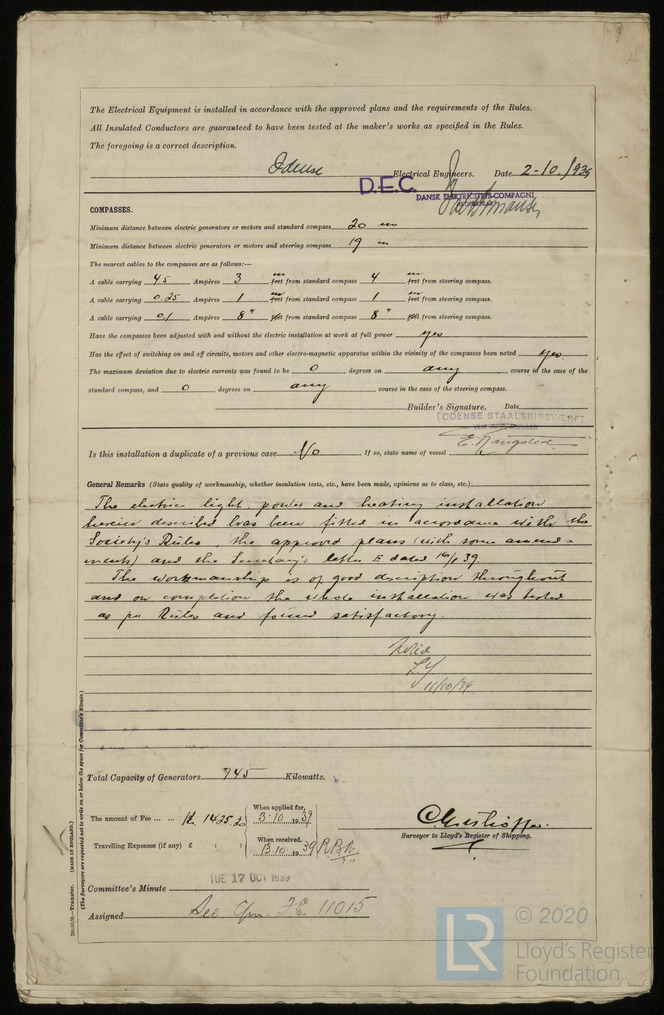 The Electrical Equipment is installed in accordance with the approved plans and the requirements of the Rules.
All Insulated Conductors are guaranteed to have been tested at the maker's works as specified in the Rules.
The foregoing is a correct description.
Odense Electrical Engineers. Date 2-10./1939
D.E.C. DANSK ELEKTRICITETS-COMPAGNI
COMPASSES.
Minimum distance between electric generators or motors and standard compass 20 m
Minimum distance between electric generators or motors and steering compass 19 m
The nearest cables to the compasses are as follows:—
A cable carrying 45 Ampères 3 m feet from standard compass 4 m feet from steering compass.
A cable carrying 0.25 Ampères 1 m feet from standard compass 1 m feet from steering compass.
A cable carrying 0.1 Ampères 8" feet from standard compass 8" feet from steering compass.
Have the compasses been adjusted with and without the electric installation at work at full power yes
Has the effect of switching on and off circuits, motors and other electro-magnetic apparatus within the vicinity of the compasses been noted yes.
The maximum deviation due to electric currents was found to be 0 degrees on any course in the case of the
standard compass, and 0 degrees on any course in the case of the steering compass.
Builder's Signature. Date
ODENSE STAALSKIBSVÆRFT
E. Ringsted
Is this installation a duplicate of a previous case No If so, state name of vessel
General Remarks (State quality of workmanship, whether insulation tests, etc., have been made, opinions as to class, etc.)
The electric light, power and heating installation
herein described has been fitted in accordance with the
Society's Rules, the approved plans (with some amend-
ments) and the Secretary's letter E dated 16/1 39.
The workmanship is of good description throughout
and on completion the whole installation was tested
as per Rules and found satisfactory.
Noted
11/10/39
Total Capacity of Generators 745 Kilowatts.
The amount of Fee ... ... Kr. 1425.20 When applied for, 3.10.1939
Travelling Expenses (if any) £ : : When received, 13.10.1939
Surveyor to Lloyd's Register of Shipping.
TUE 17 OCT 1939
Committee's Minute
Assigned See Cpn. F.E. 11015
Transfer. (MADE IN ENGLAND.)
(The Surveyors are requested not to write on or below the space for Committee's Minute.)
LR
© 2020
Lloyd's Register
Foundation